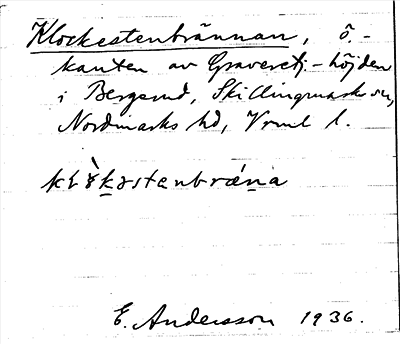 Klockestenbrännan, ö.-
kanten av Gravsretj.-höjden
i Bergerud, Skillingmarks sn,
Nordmarks hd, Vrml l.
E. Andersson 1936.